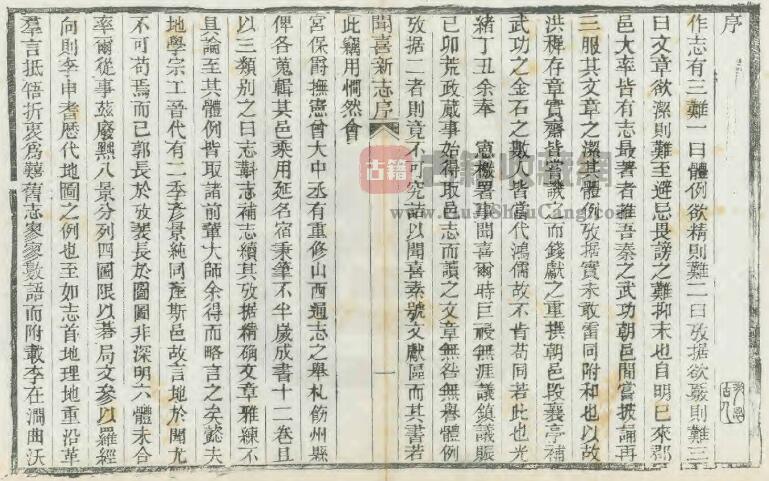 序
作志有三難一曰體例欲精則難二曰攷據欲覈則難三
曰文章欲潔則難至避忌畏謗之難抑末也自明已來郡
邑大率皆有志最著者雖吾秦之武功朝邑間嘗披誦再
三服其文章之潔其體例攷據實未敢雷同附和也以故
洪稚存章實齋皆嘗譏之而錢獻之重撰朝邑段襄亭補
武功之金石之數人皆當代鴻儒故不肯苟同若此也光
緒丁丑余奉 憲檄署事聞喜爾時巨祲無涯議鎮議賑
己卯荒政蕆事始得取邑志而讀之文章無咎無譽體例
攷据二者則竟不可究詰以聞喜素號文獻區而其書若
聞喜新志序
一
此竊用憪然會
宮保爵撫憲曾大中丞有重修山西通志之舉札飭州縣
俾各蒐輯其邑乘用延名宿秉筆不半歲成書十二卷且
以三類別之曰志斠志補志續其攷据精确文章雅練不
且論至其體例皆取諸前軰大師余得而略言之矣懿夫
地學宗工晉代有二季彥景純同產斯邑故言地於聞尤
不可苟焉而已郭長於攷裴長於圖圖非深明六體未合
率爾從事茲廢黜八景分列四圖限以碁局文參以羅經
向則李申耆歷代地圖之例也至如志首地理地重沿革
羣言抵牾折衷爲難舊志寥寥數語而附載李在澗曲沃
古籍
古籍收藏网
www.GuJiShuCang.com